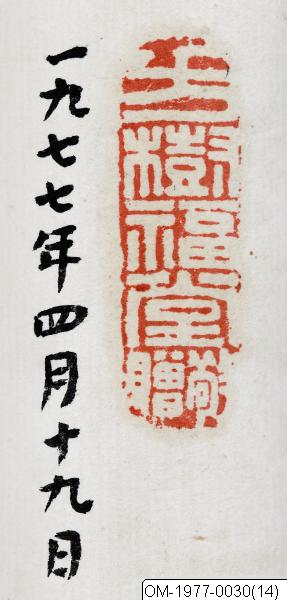 樹福堂贈
一九七七年四月十九日
OM-1977-0030(14)